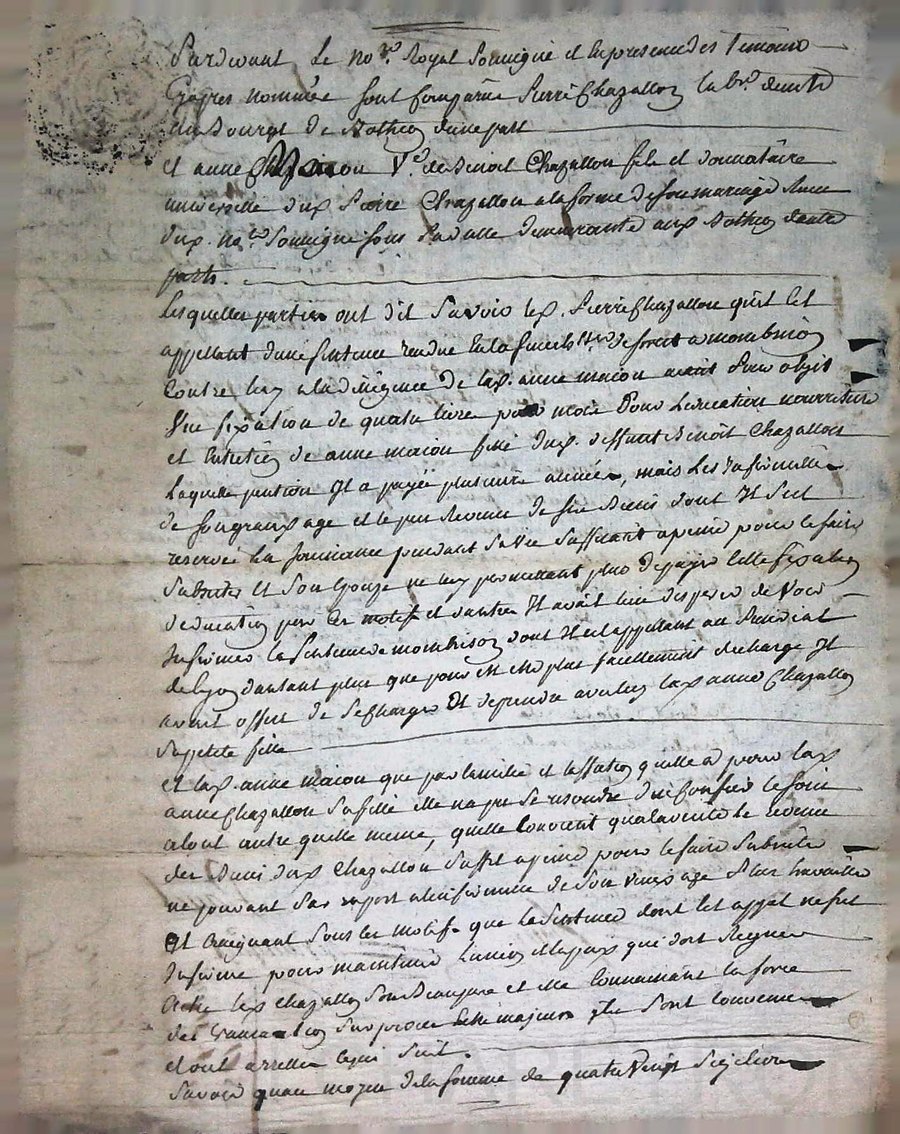 Pardevant Le no.re Royal Soussigné et en presence des Temoins
Cyapres nommés sont Comparus Pierre Chazallon lab.r demt
au Bourg de Bothéon d'une part
et anne Maison V.e de Benoit Chazallon fils et donnataire
universelle dud. Pierre Chazallon a la forme de son mariage Receu
dud. No.re Soussigné sous sa datte demeurante aud. Bothéon d'autre
part.
Lesquelles parties ont dit Savoir led. Pierre Chazallon qu'il est
appellant d'une sentence rendue en la de forest a montbrison
Contre luy a la diligence de lad. anne maison ayant Pour objet
Une fixation de quatre livres par mois Pour Leducation nourriture
et Entretien de anne fille dud. deffunt Benoit Chazallon
Laquelle pention Il a payée plusieurs années, mais Les Infirmités
de son grand age et le peu de revenu de ses Biens dont Il s'est
reservé La jouissance pendant sa vie Suffisant a peine pour le faire
Subsister Et Son Epouze ne luy permettant plus de payer cette fixation
deducation pour ces motifs et dautres Il avait lieu desperer de Voir
Infirmer la Sentence de montbrison dont Il est appellant au Presidial
de Lyon d'autant plus que pour et plus facilement decharge Il
avait offert de Se Charger Et deprendre avec luy lad. anne Chazallon
Sa petite fille
et lad. anne maison que par lamitié et laffection quelle a pour lad.
anne Chazallon sa fille elle na pu se resoudre den Confier le soin
a tout autre quelle meme, quelle Convient qua la verité le revenu
des Biens dud. Chazallon Suffit a peine pour le faire Subsister
ne pouvant Par raport a linfirmité de Son vieux age Plus travailler
Et Craignant Sous ces motifs que la Sentence dont Est appel ne fut
Infirmée pour maintenir Lunion et la paix qui doit Regner
entre led. Chazallon Son Beaupere et elle Connaissant la force
des transactions Sur proces entre majeurs Ils Sont Convenus
et ont arretté cequi Suit.
Savoir quau moyen de la somme de quatre vingt Seize livres